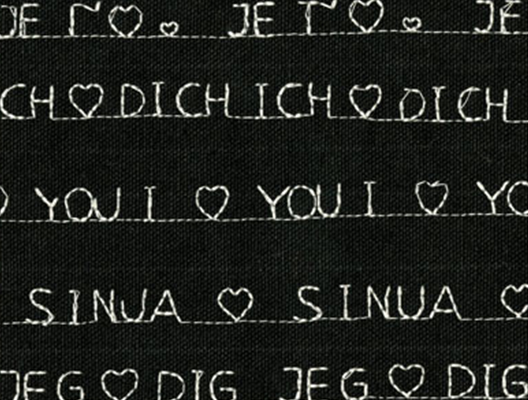 JE T'♡. ♡ JE T'♡. ♡ JE
ICH ♡ DICH ICH ♡ DICH
♡ YOU I ♡ YOU I ♡ YO
SINUA ♡ SINUA ♡
JEG ♡ DIG JEG ♡ DIG